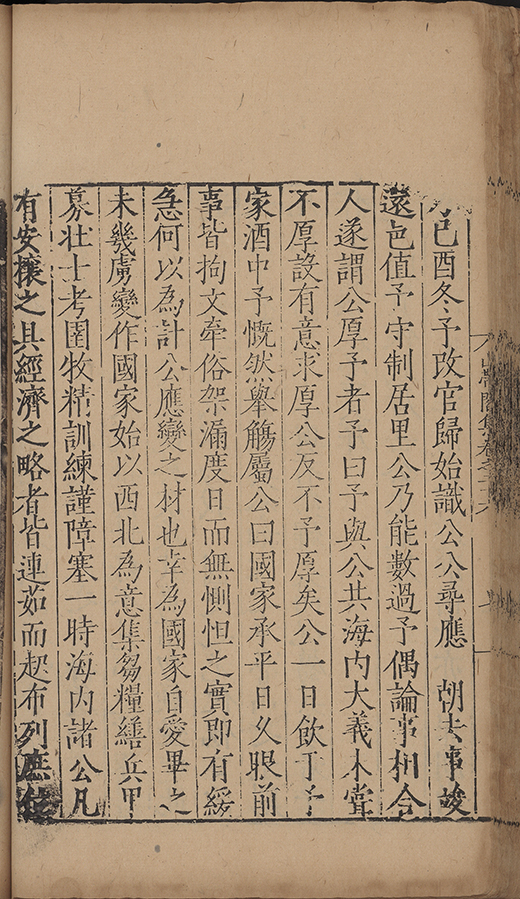 己酉冬予改官歸始識公公尋應　朝去事竣
還邑值予守制居里公乃能數過予偶論事相合
人遂謂公厚予者予曰予與公共海內大義未嘗
不厚設有意求厚公反不予厚矣公一日飲于予
家酒中予慨然舉觴屬公曰國家承平日久眼前
事皆拘文牽俗架漏度日而無惻怛之實即有緩
急何以為計公應變之材也幸為國家自愛畢之
未幾虜變作國家始以西北為意集芻糧繕兵甲
募壯士考圉牧精訓練謹障塞一時海內諸公凡
有安攘之具經濟之略者皆連茹而起布列庶位